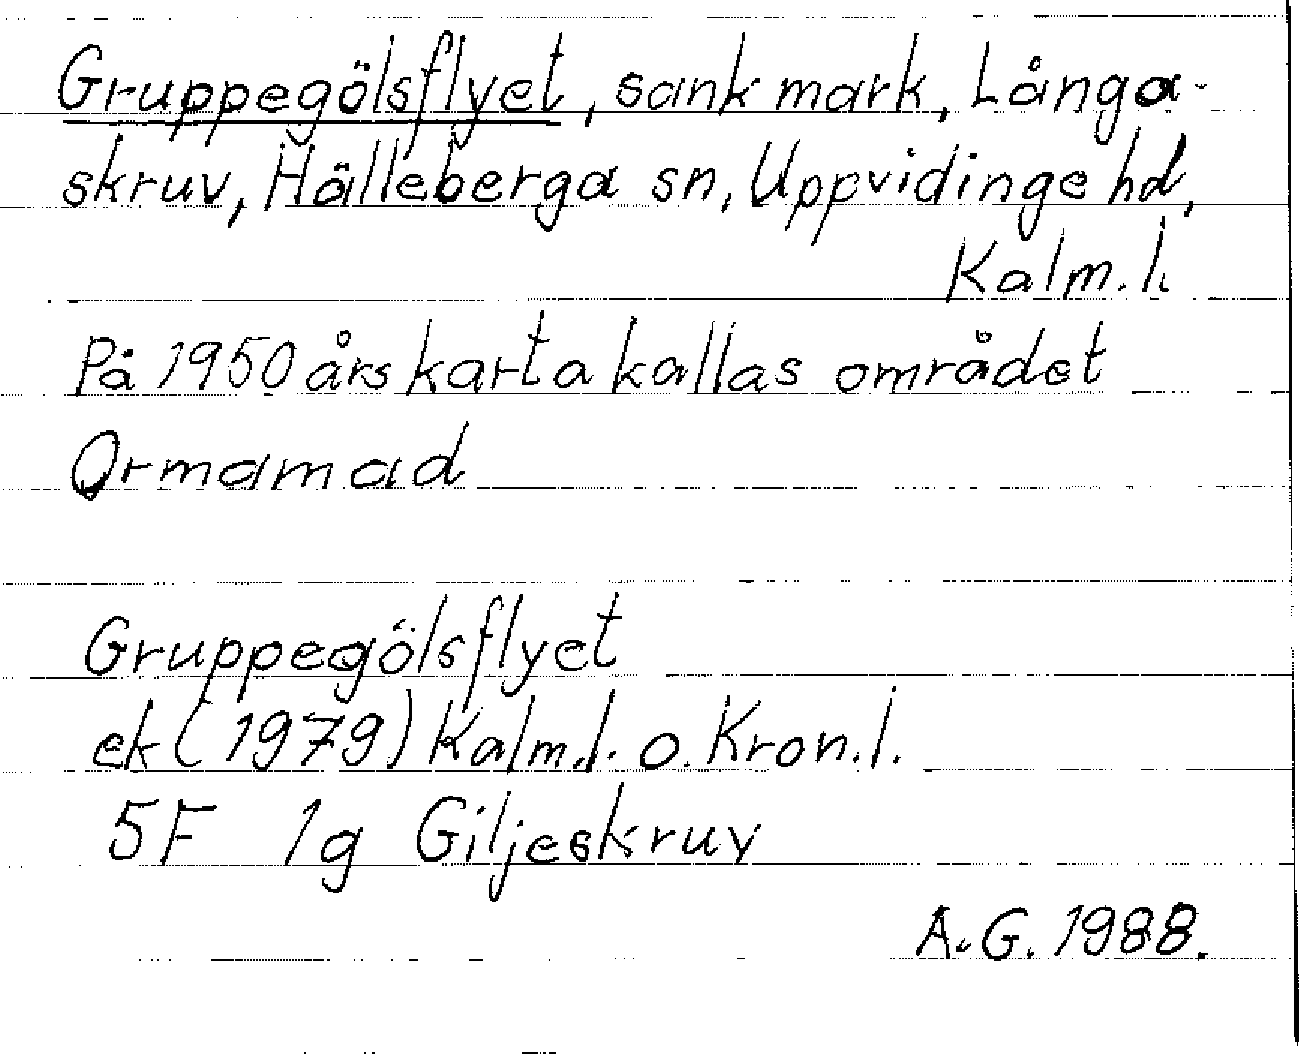 Gruppegölsflyet, sank mark, Långa-
skruv, Hälleberga sn, Uppvidinge hd,
Kalm. l.
På 1950 års karta kallas området
Ormamad
Gruppegölsflyet
ek (1979) Kalm.l. o. Kron.l.
5F 1g Giljeskruv
A.G. 1988.